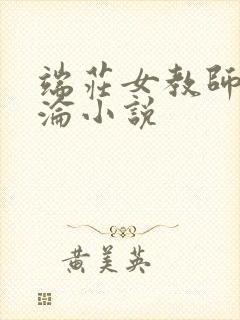 端莊女教師
淪小說
黄美英